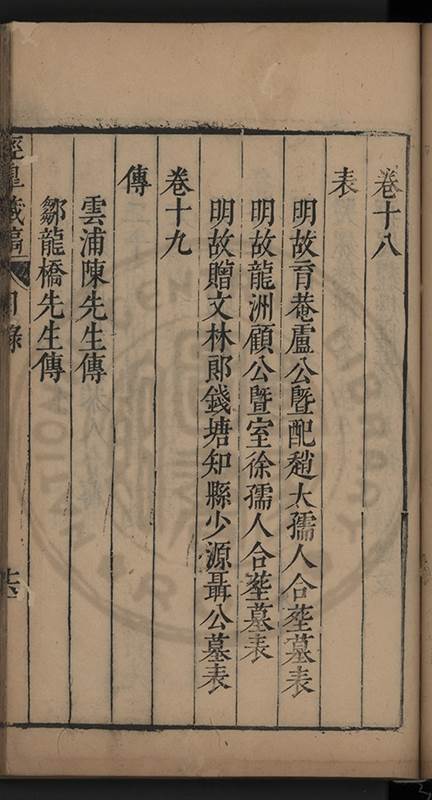 卷十八
表
明故育菴盧公暨配趙太孺人合塟墓表
明故龍洲顧公暨室徐孺人合塟墓表
明故贈文林郎錢塘知縣少源聶公墓表
卷十九
傳
雲浦陳先生傳
鄒龍橋先生傳
涇臯藏稿
目錄